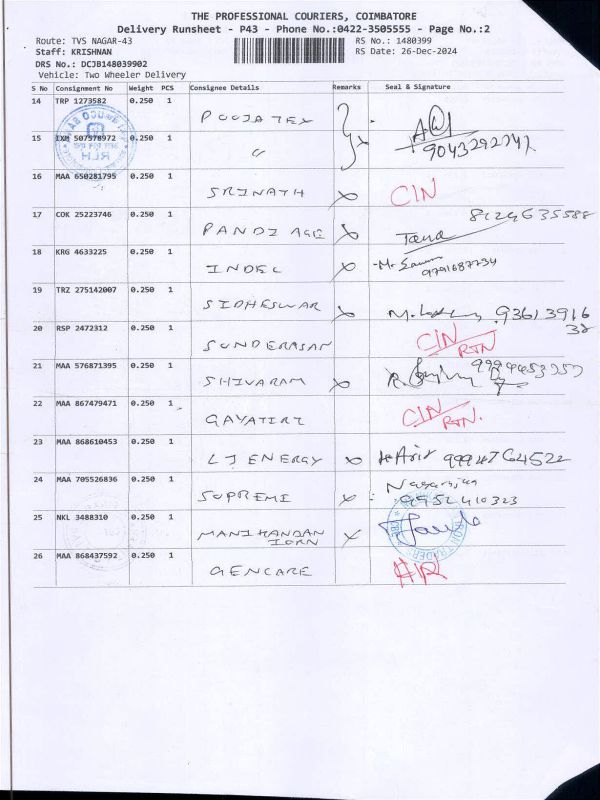 THE PROFESSIONAL COURIERS, COIMBATORE
Delivery Runsheet - P43 - Phone No.:0422-3505555 - Page No.:2
Route: TVS NAGAR-43
RS No.: 1480399
Staff: KRISHNAN
RS Date: 26-Dec-2024
DRS No.: DCJB148039902
Vehicle: Two Wheeler Delivery
S No Consignment No Weight PCS Consignee Details Remarks Seal & Signature
14 TRP 1273582 0.250 1 POOJA TEX
15 IXM 507978972 0.250 1 "
9043292747
16 MAA 650281795 0.250 1 SRINATH x CIN
17 COK 25223746 0.250 1 PANDI AGE x
18 KRG 4633225 0.250 1 INDEL x
9791687734
19 TRZ 275142007 0.250 1 SIDHESWAR x 93613916
32
20 RSP 2472312 0.250 1 SUNDERASAN CIN
RTN
21 MAA 576871395 0.250 1 SHIVARAM x
22 MAA 867479471 0.250 1 GAYATIRI CIN
RTN.
23 MAA 868610453 0.250 1 LJ ENERGY x 9994764522
24 MAA 705526836 0.250 1 SUPREME x Nagarajan
9952410323
25 NKL 3488310 0.250 1 MANIKANDAN x
IORN
26 MAA 868437592 0.250 1 GENCARE